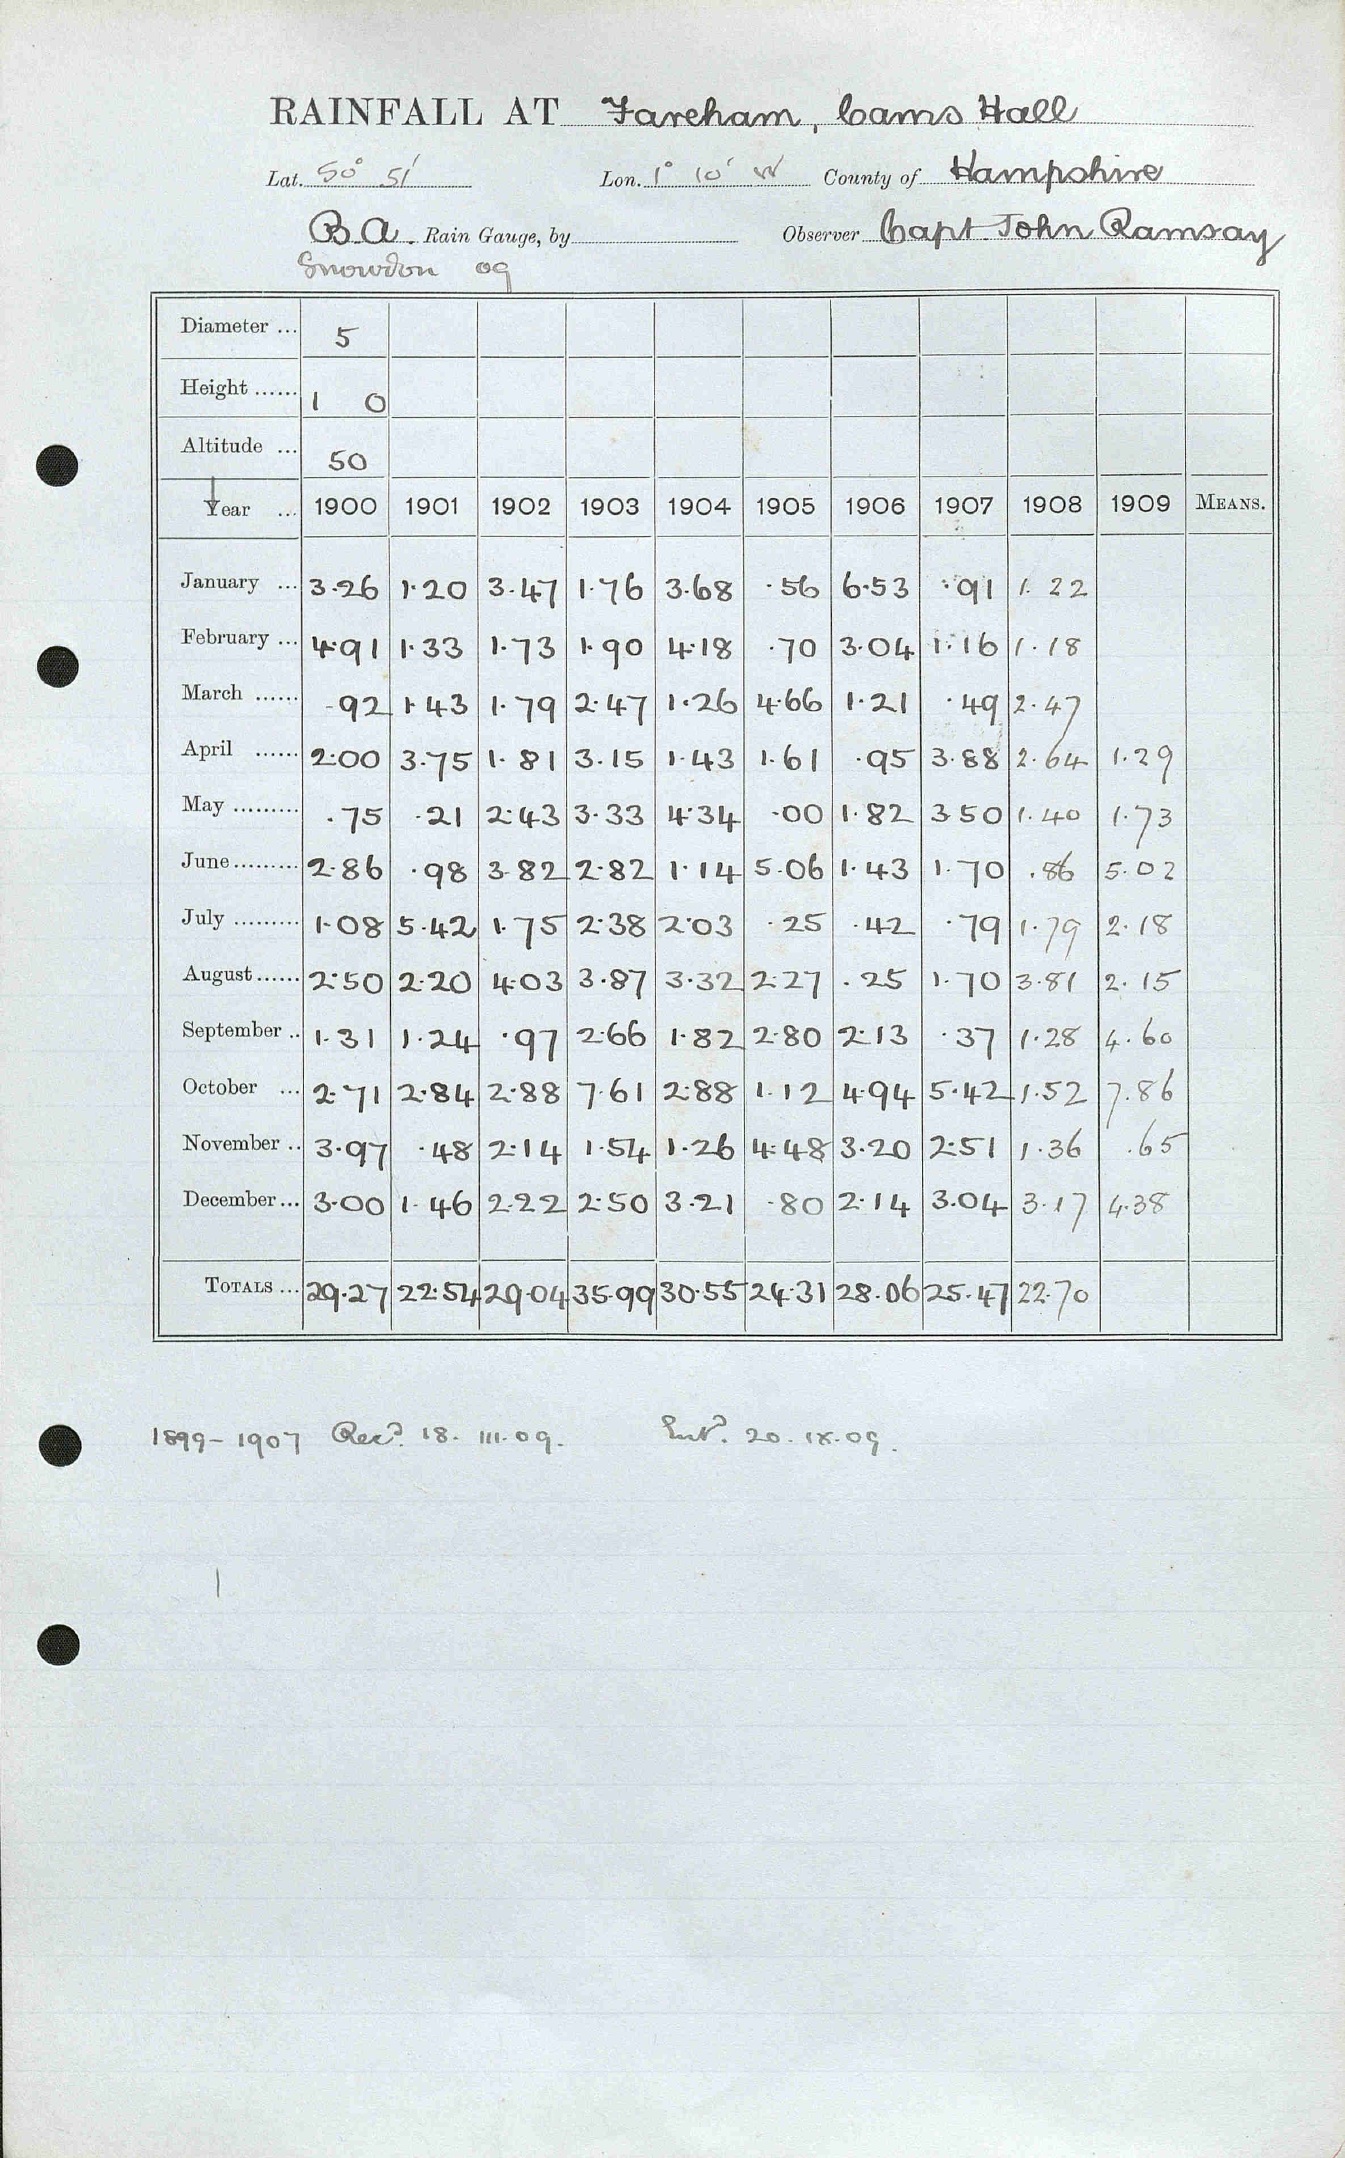 RAINFALL AT Fareham, Cams Hall
Lat. 50° 51' Lon. 1° 10' W County of Hampshire
B A. Rain Gauge, by Observer Capt John Ramsay
Snowdon 09
Diameter ... 5
Height ...... 1 0
Altitude ... 50
Year ... 1900 1901 1902 1903 1904 1905 1906 1907 1908 1909 MEANS.
January ... 3.26 1.20 3.47 1.76 3.68 .56 6.53 .91 1.22
February ... 4.91 1.33 1.73 1.90 4.18 .70 3.04 1.16 1.18
March ...... .92 1.43 1.79 2.47 1.26 4.66 1.21 .49 2.47
April ...... 2.00 3.75 1.81 3.15 1.43 1.61 .95 3.88 2.64 1.29
May ......... .75 .21 2.43 3.33 4.34 .00 1.82 3.50 1.40 1.73
June ......... 2.86 .98 3.82 2.82 1.14 5.06 1.43 1.70 .86 5.02
July ......... 1.08 5.42 1.75 2.38 2.03 .25 .42 .79 1.79 2.18
August ...... 2.50 2.20 4.03 3.87 3.32 2.27 .25 1.70 3.81 2.15
September .. 1.31 1.24 .97 2.66 1.82 2.80 2.13 .37 1.28 4.60
October ... 2.71 2.84 2.88 7.61 2.88 1.12 4.94 5.42 1.52 7.86
November .. 3.97 .48 2.14 1.54 1.26 4.48 3.20 2.51 1.36 .65
December ... 3.00 1.46 2.22 2.50 3.21 .80 2.14 3.04 3.17 4.38
TOTALS ... 29.27 22.54 29.04 35.99 30.55 24.31 28.06 25.47 22.70
1899-1907 Recd. 18. III. 09. Entd. 20. IX. 09.